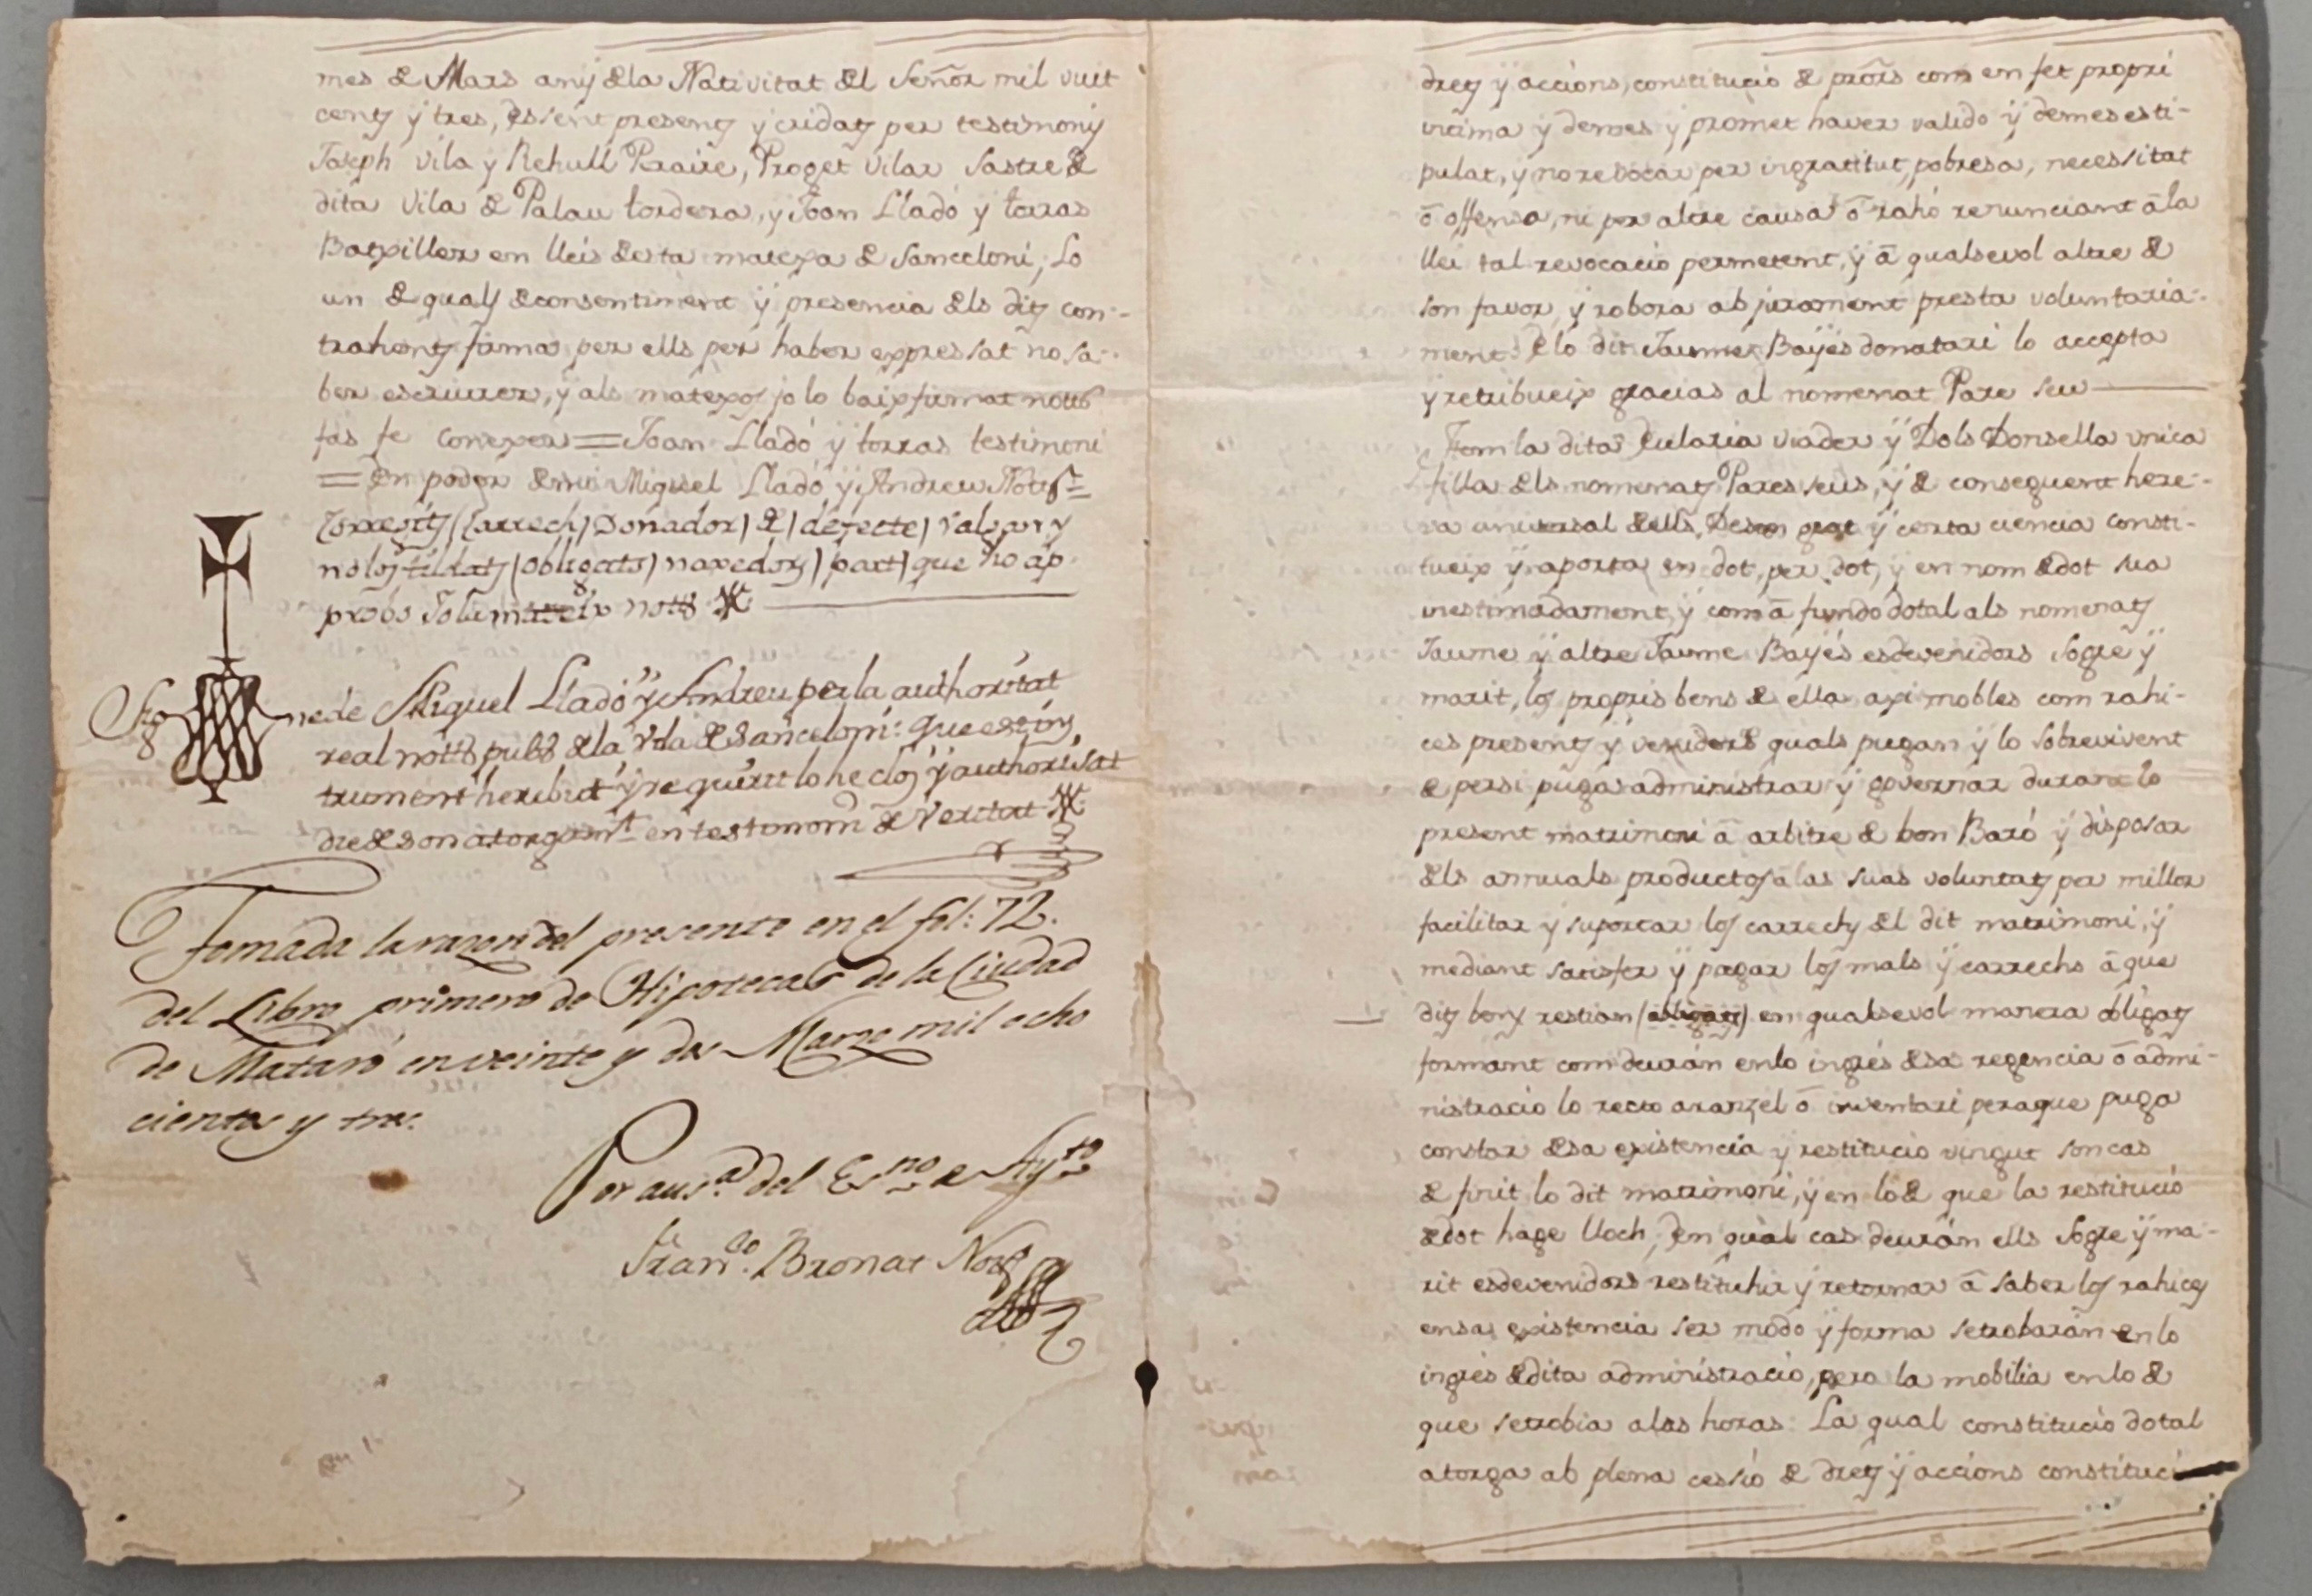 mes de Mars any dela Nativitat del Señor mil vuit
cents y tres, essent presents y cridats per testimonis
Joseph Vila y Rehull Peraire, Proget Vilar Sastre de
dita Vila de Palau tordera, y Joan Lladó y torras
Batxiller en lleis desta matexa de Sanceloni; Lo
un de quals de consentiment y presencia dels dits con-
trahents firma per ells per haber expressat no sa-
ber escriurer, y als matexos jo lo baix firmat nottº
fas fe conexer = Joan Lladó y torras testimoni
= En poder de mi Miquel Lladó y Andreu Nott
Correcits (Carrech) Donador) de) defecte) valgan y
no los tildats (obligats) naxedors) part) que ho ap-
probo nottº
Sig ne de Miquel Lladó y Andreu per la authoritat
real nottº pubº dela Vila de Sanceloni: que est ins
trument herebut y requirit lo he clos y authorisat
die de son atorgamt en testimoni de Veritat
Tomada la razon del presente en el fol: 72.
del Libro primero de Hipotecas de la Ciudad
de Mataró en veinte y dos Marzo mil ocho
cientos y tres.
Por ausª del Esno de Aytº
Franco Bronat Nott
drets y accions, constitució de prors com en fet propri
ut ima y demes y promet haver valido y demes esti-
pulat, y no revocar per ingratitut, pobresa, necessitat
ó offensa, ni per altre causa ó rahó renunciant á la
llei tal revocació permetent, y á qualsevol altre de
son favor, y robora ab jurament presta voluntaria-
ment. E lo dit Jaume Bayés donatari lo accepta
y retribueix gracias al nomenat Pare seu
Item la dita Eularia Viader y Dols Donsella unica
filla dels nomenats Pares seus, y de conseguent here-
ra universal dells, De son grat y certa ciencia consti-
tueix y aporta en dot, per dot, y en nom de dot sua
inestimadament, y com á fundo dotal als nomenats
Jaume y altre Jaume Bayés esdevenidors Sogre y
marit, los propris bens de ella axi mobles com rahi-
ces presents y venidors quals pugan y lo sobrevivent
de persi puga administrar y governar durant lo
present matrimoni á arbitre de bon Baró y disposar
dels annuals productos á las suas voluntats per millor
facilitar y suportar los carrechs del dit matrimoni, y
mediant satisfer y pagar los mals y carrechs á que
dits bens restian (obligats) en qualsevol manera obligats
formant com deurán en lo ingrés de sa regencia ó admi-
nistració lo recto aranzel ó inventari peraque puga
constar de sa existencia y restitució vingut son cas
de finit lo dit matrimoni, y en lo de que la restitució
de dot hage lloch, En qual cas deurán ells Sogre y ma-
rit esdevenidors restituhir y retornar á saber los rahices
en sa existencia ser modo y forma se trobarán en lo
ingrés de dita administració, pero la mobilia en lo de
que se trobia alas horas: La qual constitució dotal
atorga ab plena cessió de drets y accions constituci